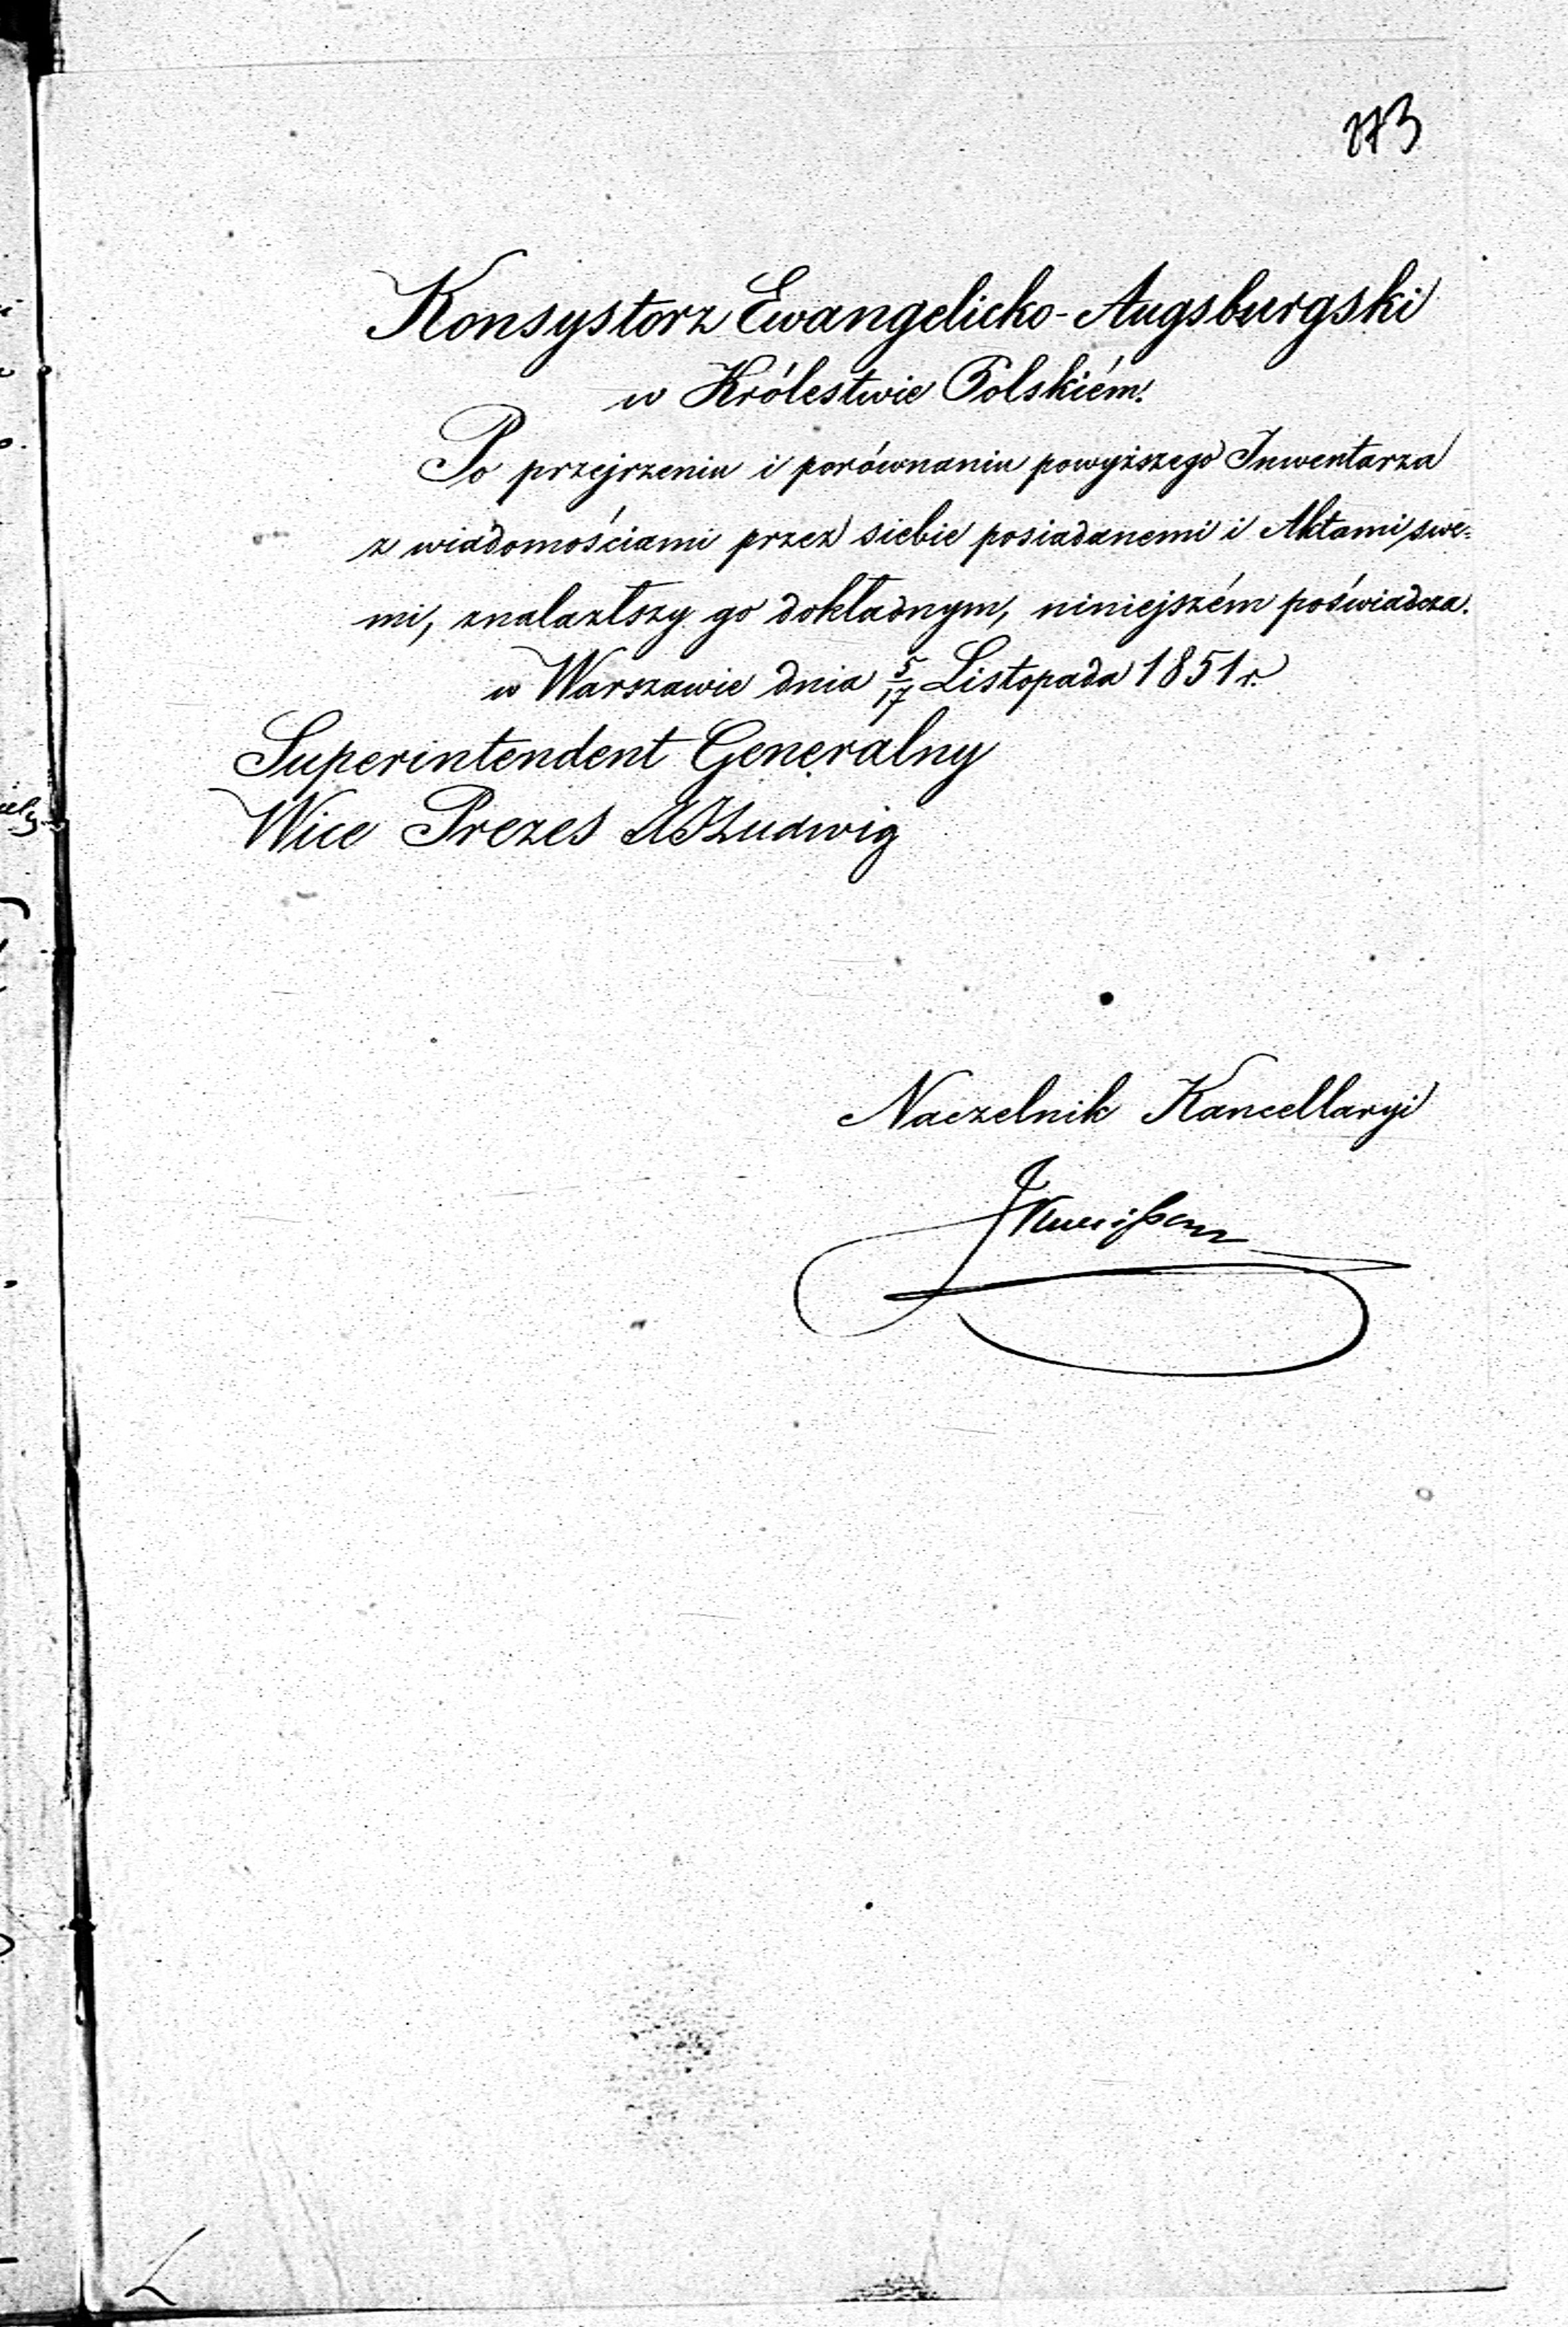 173
Konsystorz Ewangelicko-Augsburgski
w Królestwie Polskiém.
Po przejrzeniu i porównaniu powyższego Inwentarza
z wiadomościami przez siebie posiadanemi i Aktami swe-
mi, znalazłszy go dokładnym, niniejszém poświadcza.
w Warszawie dnia 5/17 Listopada 1851 r.
Superintendent Generalny
Wice Prezes Ludwig
Naczelnik Kancellaryi